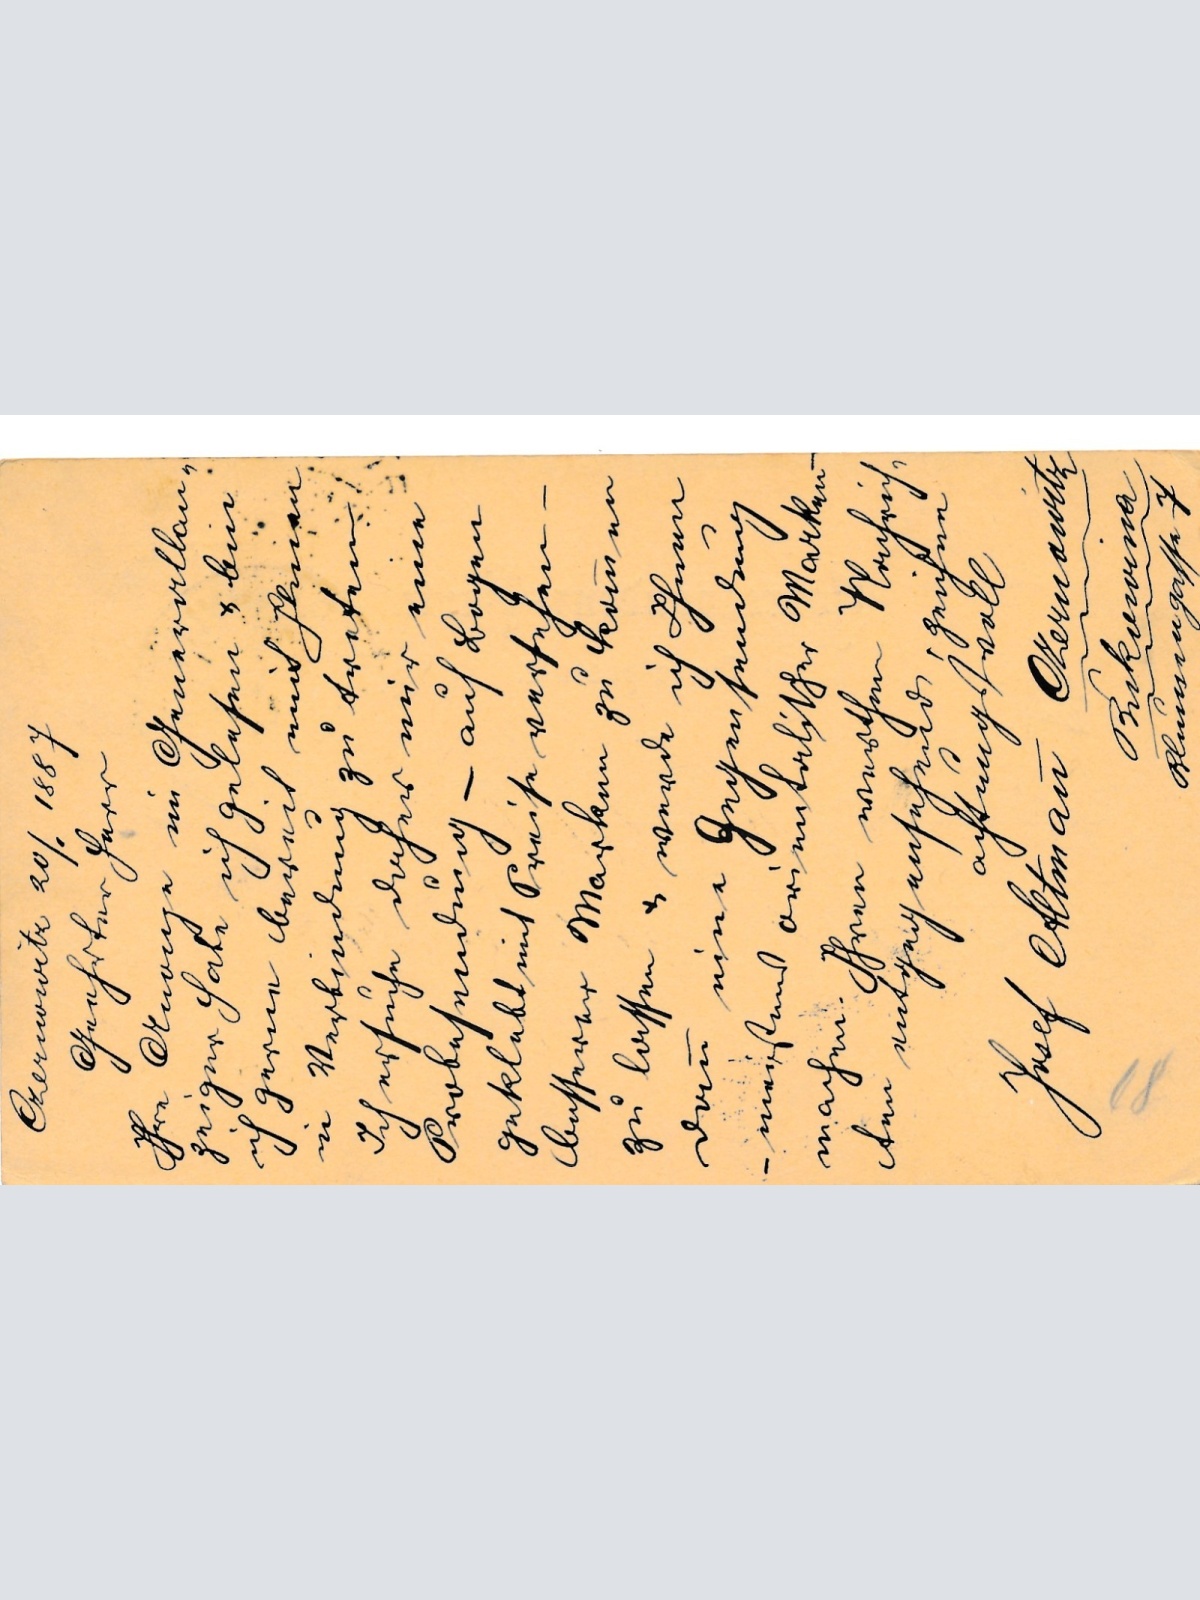 Czernowitz 20/1 1887
Geehrter Herr
Ihre Anonze im Generallan„
zeiger habe ich gelesen & bin
ich gerne bereit mit Ihnen
in Verbindung zu treten.
Ich ersuche daher mir eine
Probesendung — auf Bogen
geklebt mit Preise versehen —
besserer Marken zu kom̄en
zu lassen & werde ich Ihnen
dan̄ eine Gegensendung
– meistens orientalischer Marken –
machen. Ihren werthen Nachrich„
ten entgegensehend, zeichne
achtungsvoll
Josef Altman̄ Czernowitz
Bukowina
Blumengasse 7
18